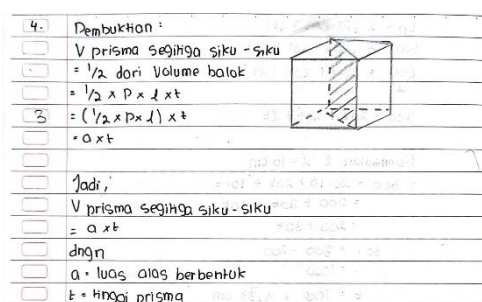 4. Pembuktian :
V prisma segitiga siku - siku
= 1/2 dari Volume balok
= 1/2 x P x l x t
3 = (1/2 x P x l) x t
= a x t
Jadi,
V prisma segitiga siku - siku
= a x t
dngn
a = luas alas berbentuk
t = tinggi prisma